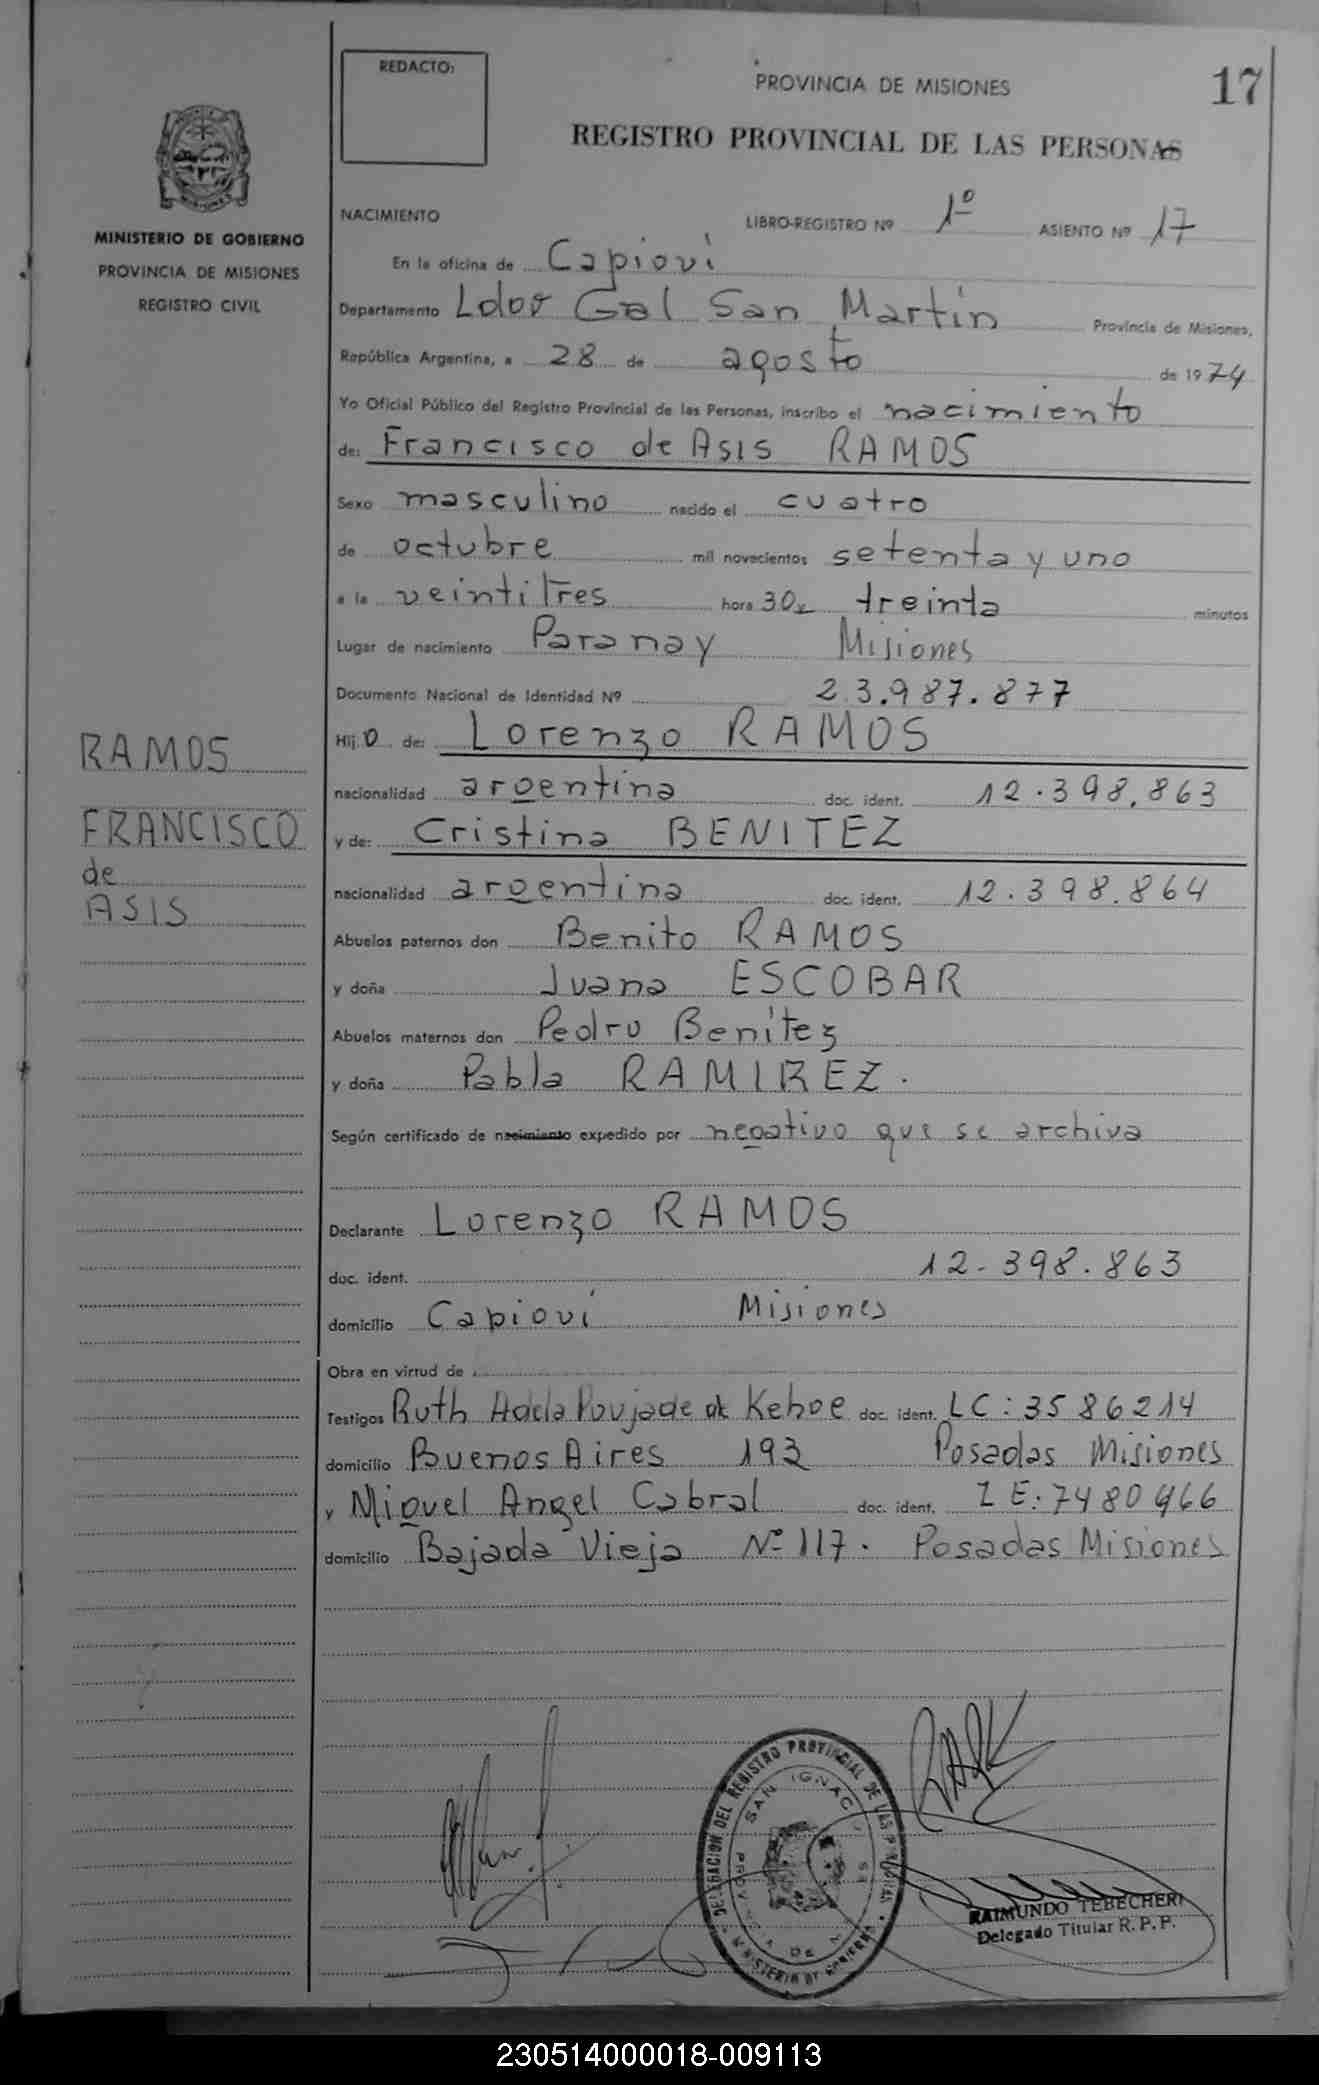 REDACTO:
PROVINCIA DE MISIONES
17
REGISTRO PROVINCIAL DE LAS PERSONAS
MISIONES
MINISTERIO DE GOBIERNO
PROVINCIA DE MISIONES
REGISTRO CIVIL
NACIMIENTO LIBRO-REGISTRO Nº 1º ASIENTO Nº 17
En la oficina de Capioví
Departamento Ldor Gal San Martín Provincia de Misiones,
República Argentina, a 28 de agosto de 1974
Yo Oficial Público del Registro Provincial de las Personas, inscribo el nacimiento
de: Francisco de Asis RAMOS
Sexo masculino nacido el cuatro
de octubre mil novecientos setenta y uno
a la veintitres hora 30 y treinta minutos
Lugar de nacimiento Paranay Misiones
Documento Nacional de Identidad Nº 23.987.877
Hij o de: Lorenzo RAMOS
nacionalidad argentina doc. ident. 12.398.863
y de: Cristina BENITEZ
nacionalidad argentina doc. ident. 12.398.864
Abuelos paternos don Benito RAMOS
y doña Juana ESCOBAR
Abuelos maternos don Pedro Benítez
y doña Pabla RAMIREZ.
Según certificado de nacimiento expedido por negativo que se archiva
Declarante Lorenzo RAMOS
doc. ident. 12-398.863
domicilio Capioví Misiones
Obra en virtud de
Testigos Ruth Adela Poujade de Kehoe doc. ident. LC: 3586214
domicilio Buenos Aires 193 Posadas Misiones
y Miguel Angel Cabral doc. ident. L E: 7480466
domicilio Bajada Vieja Nº 117. Posadas Misiones
RAMOS
FRANCISCO
de
ASIS
DELEGACION DEL REGISTRO PROVINCIAL DE LAS PERSONAS
SAN IGNACIO
PROVINCIA DE
MINISTERIO DE GOBIERNO
RAIMUNDO TEBECHERI
Delegado Titular R. P. P.
230514000018-009113